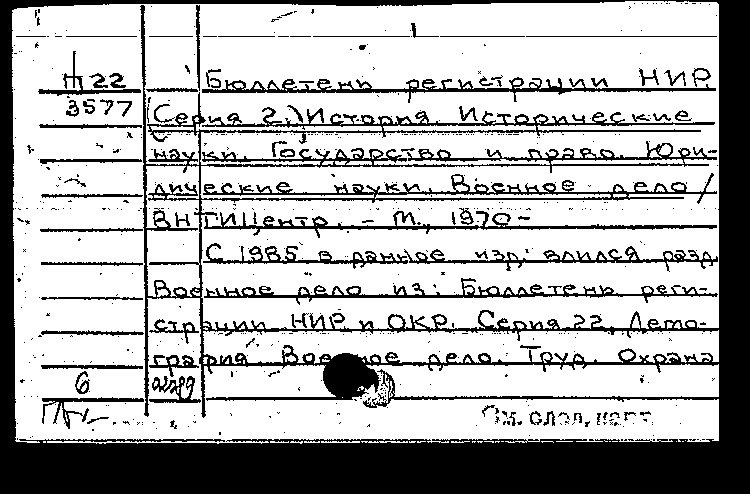 П22 Бюллетень регистрации НИР.
3577 (Серия 2.) История. Исторические
науки. Государство и право. Юри-
дические науки. Военное дело /
ВНТИЦентр. – М., 1970–
С 1985 в данное изд. влился разд.
Военное дело из: Бюллетень реги-
страции НИР и ОКР. Серия 22, Демо-
графия. Военное дело. Труд. Охрана
6
См. след. карт.